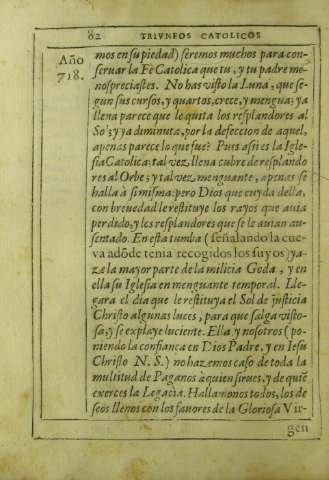 82 TRIVNFOS CATOLICOS
Año
718.
mos en su piedad) seremos muchos para con-
seruar la Fè Catolica que tu, y tu padre me-
nospreciastes. No has visto la Luna, que se-
gun sus cursos, y quartos, crece, y mengua; ya
llena parece que le quita los resplandores al
Sol; y ya diminuta, por la defeccion de aquel,
apenas parece lo que fue? Pues assi es la Igle-
sia Catolica: tal vez, llena cubre de resplando
res al Orbe; y tal vez menguante, apenas se
halla à si misma: pero Dios que cuyda della,
con breuedad le restituye los rayos que auia
perdido, y los resplandores que se le auian au-
sentado. En esta tumba (señalando la cue-
va adõde tenia recogidos los suyos) ya-
ze la mayor parte de la milicia Goda, y en
ella su Iglesia en menguante temporal. Lle-
gara el dia que le restituya el Sol de justicia
Christo algunas luces, para que salga visto-
sa, y se explaye luciente. Ella y nosotros (po-
niendo la confiança en Dios Padre, y en Iesu
Christo N. S.) no hazemos caso de toda la
multitud de Paganos à quien sirues, y de quiẽ
exerces la Legacia. Hallamonos todos, los de
seos llenos con los fauores de la Gloriosa Vir-
gen